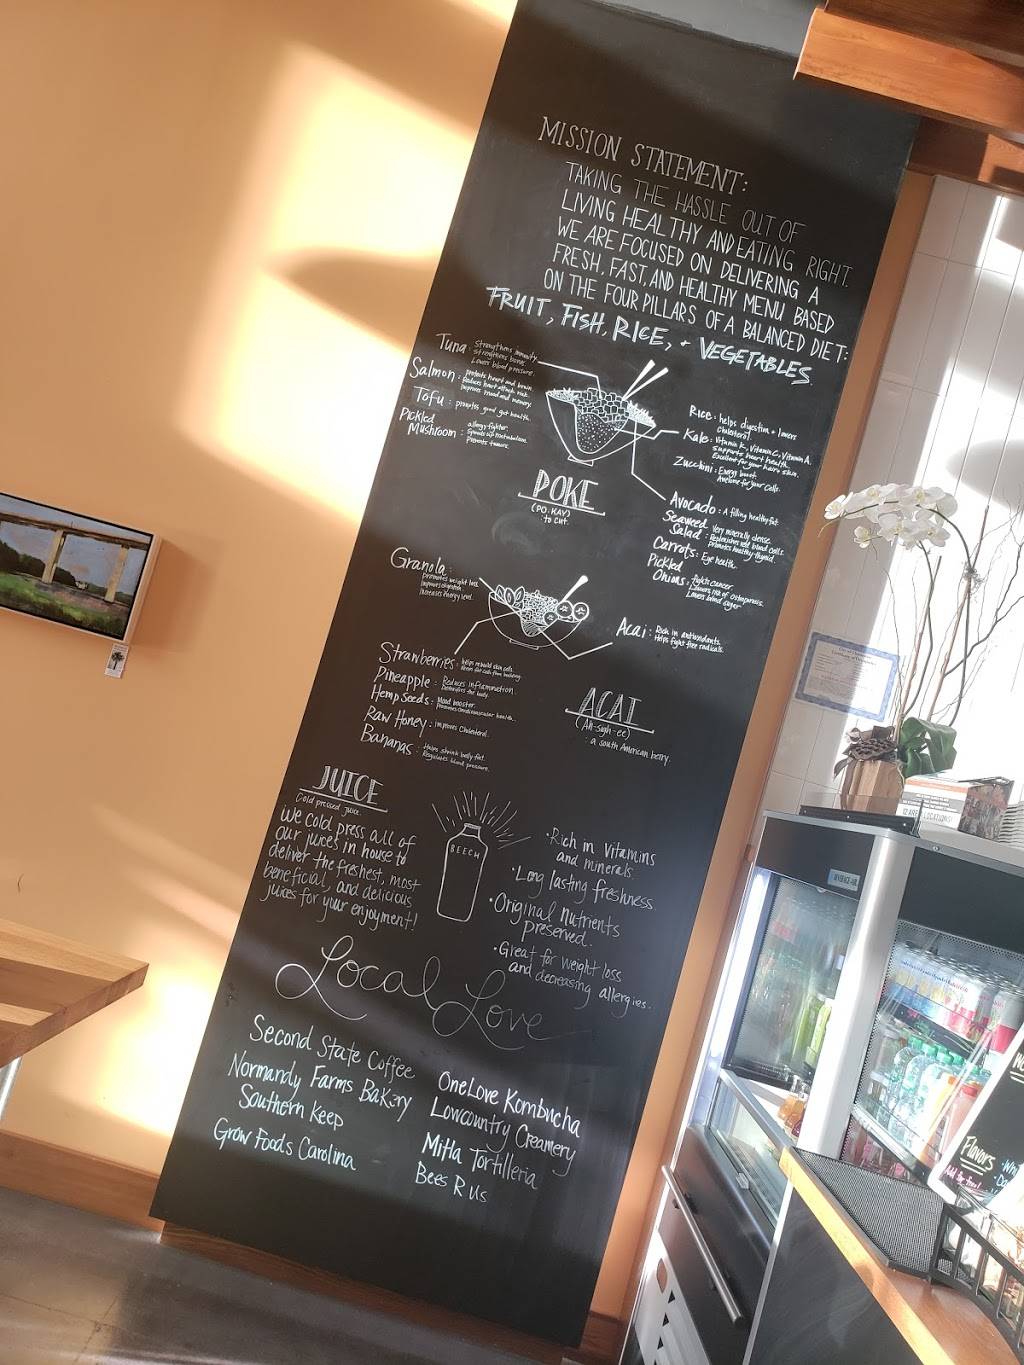 MISSION STATEMENT:
TAKING THE HASSLE OUT OF
LIVING HEALTHY AND EATING RIGHT.
WE ARE FOCUSED ON DELIVERING A
FRESH, FAST, AND HEALTHY MENU BASED
ON THE FOUR PILLARS OF A BALANCED DIET:
FRUIT, FISH, RICE, + VEGETABLES.
Tuna: Strengthens immunity
Strengthens bones.
Lowers blood pressure.
Salmon: protects heart and brain.
Reduces heart attack risk.
Improves mood and memory.
Tofu: promotes good gut health.
Pickled
Mushroom: allergy fighter.
Speeds up metabolism.
Prevents tumors.
Rice: helps digestion + lowers
cholesterol.
Kale: Vitamin K, Vitamin C, Vitamin A.
Supports heart health.
Excellent for your hair + skin.
Zucchini: Energy boost.
Awesome for your cells.
Avocado: A filling healthy fat.
Seaweed
Salad: Very minerally dense.
Replenishes red blood cells.
promotes healthy thyroid.
Carrots: Eye health.
Pickled
Onions: fights cancer.
Lowers risk of osteoporosis.
Lowers blood sugar
POKE
(PO·KAY)
to cut.
Granola:
promotes weight loss.
Improves digestion.
Increases energy level.
Acai: Rich in antioxidants.
Helps fight free radicals.
Strawberries: helps rebuild skin cells.
Pineapple: Reduces inflammation.
Detoxifies the body.
Hemp Seeds: Mood booster.
Promotes cardiovascular health.
Raw Honey: improves cholesterol.
Bananas: Helps shrink belly fat.
Regulates blood pressure.
ACAI
(Ah-sigh-ee)
: a south American berry.
JUICE
Cold pressed juice.
We cold press all of
our juices in house to
deliver the freshest, most
beneficial, and delicious
juices for your enjoyment!
BEECH
·Rich in vitamins
and minerals.
·Long lasting freshness.
·Original nutrients
preserved.
·Great for weight loss
and decreasing allergies.
Local Love
Second State Coffee
Normandy Farms Bakery
Southern Keep
Grow Foods Carolina
OneLove Kombucha
Lowcountry Creamery
Mitla Tortilleria
Bees R Us
LOCATIONS!
Flavors